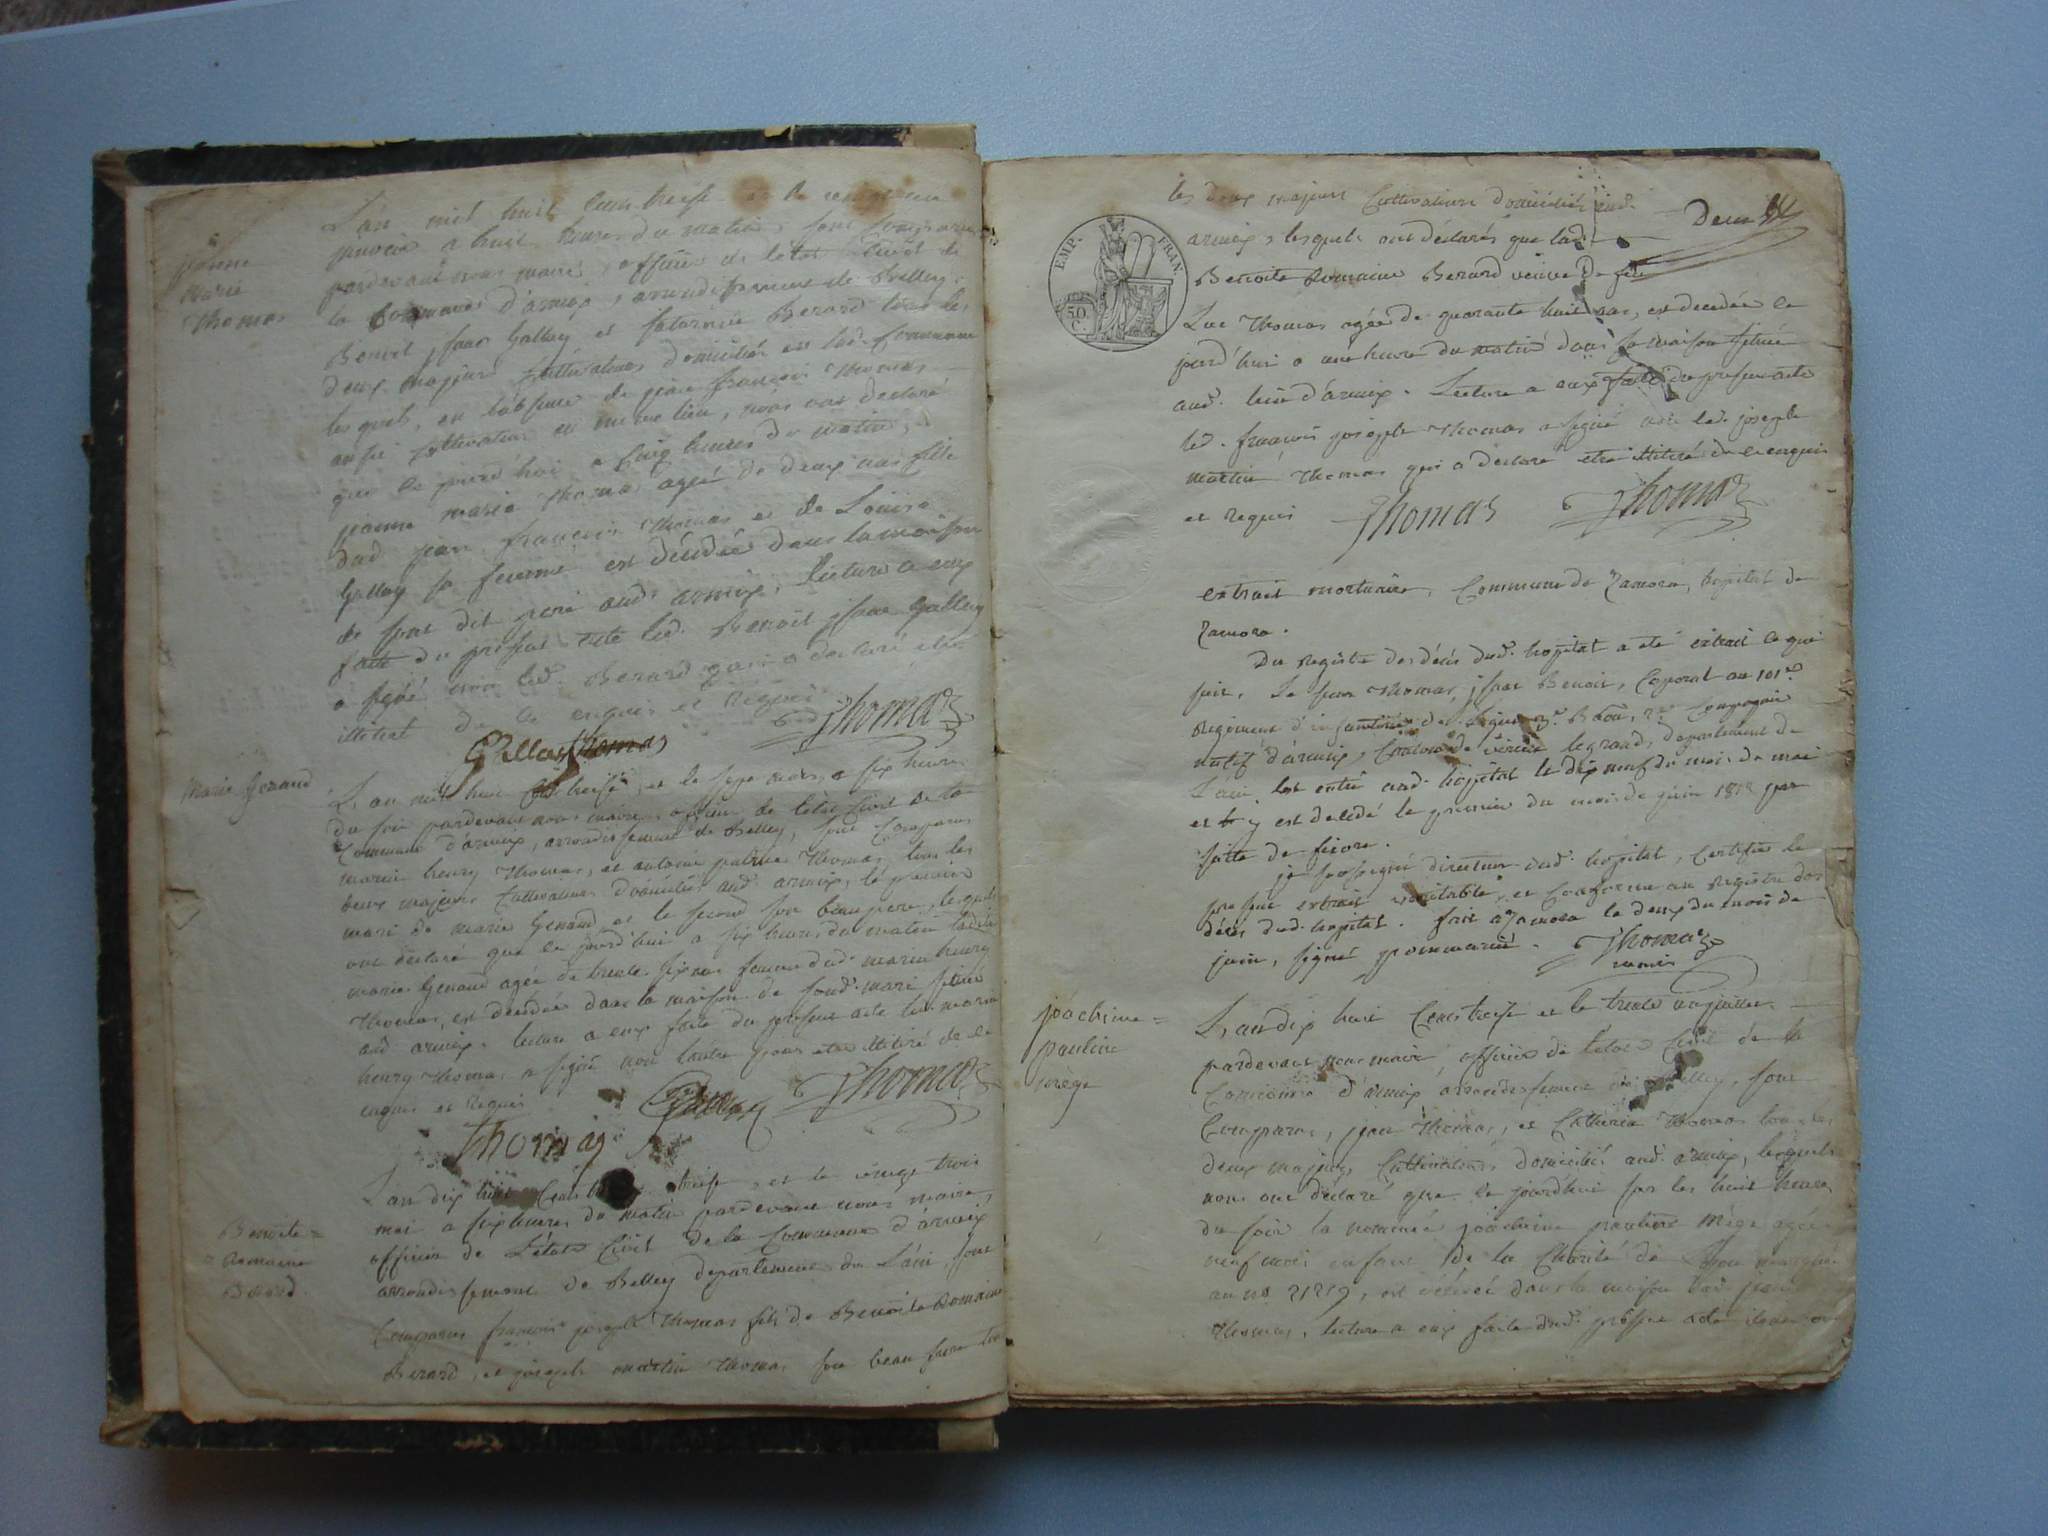 jeanne
marie
Thomas
L'an mil huit cent treize et le
janvier a huit heures du matin sont comparus
pardevant nous maire, officier de l'état civil de
la commune d'armix, arrondissement de Belley,
Benoit jsaac Gallay et saturnin Berard tous les
deux majeurs cultivateurs domiciliés en lad. commune
lesquels, en l'absence de jean françois Thomas
aussi cultivateur en même lieu, nous ont declaré
que ce jourd'hui a cinq heures du matin,
jeanne marie Thomas agée de deux ans fille
dud jean françois Thomas et de Louise
Gallay sa femme est décédée dans la maison
de sond dit pere aud. armix, lecture a eux
faite du présent acte led. Benoit jsaac Gallay
a signé non led. Berard qui a declaré etre
illitéré de ce enquis et requis
Gallay Thomas Thomas
marie Genaud
L'an mil huit cent treize, et le sept mars, a six heures
du soir pardevant nous maire, officier de l'état civil de la
commune d'armix, arrondissement de Belley, sont comparus
marin henry Thomas, et antoine Thomas, tous les
deux majeurs cultivateurs domiciliés aud. armix, le premier
mari de marie Genaud et le second son beau pere, lesquels
ont déclaré que ce jourd'hui a six heures du matin ladite
marie Genaud agée de trente six ans femme dud. marin henry
Thomas, est décédée dans la maison de sond. mari située
aud armix. lecture a eux faite du présent acte led. marin
henry Thomas a signé non l'autre pour etre illitéré de ce
enquis et requis
Thomas
Thomas
Benoite
Romaine
Berard
L'an dix huit cent treize, et le vingt trois
mai a six heures du matin pardevant nous maire,
officier de l'état civil de la commune d'armix
arrondissement de Belley departement de L'ain, sont
comparus françois joseph Thomas fils de Benoite Romaine
Berard, et joseph martin Thomas son beau frere tous
les deux majeurs cultivateurs domiciliés aud.
Deux
EMP. FRAN.
50
C.
armix, lesquels ont déclarés que lad.
Benoite Romaine Berard veuve de feu
Luc Thomas agée de quarante huit ans, est decedée ce
jourd'hui a une heure du matin dans sa maison située
aud. lieu d'armix. Lecture a eux faite du present acte
led. françois joseph Thomas a signé non led. joseph
martin Thomas qui a declaré etre illitéré de ce enquis
et requis Thomas Thomas
extrait mortuaire, Commune de Zamora, hopital de
Zamora.
Du registre des décès dud. hopital a été extrait ce qui
suit. Le sieur Thomas jsaac Benoit, Caporal au 101e
Regiment d'infanterie de ligne Baton, 2e Compagnie
natif d'armix, Canton de virieu le grand, departement de
L'ain est entré aud. hopital le dix neuf du mois de mai
et y est decedé le premier du mois de juin 1812 par
suitte de fievre.
je soussigné directeur dud. hopital, certifie le
présent extrait veritable, et conforme au registre des
décès dud. hopital. fait à Zamora le deux du mois de
juin, signé Thomas
maire
joachime
pauline
mège
L'an dix huit cent treize et le trente un juillet
pardevant nous maire, officier de l'état civil de la
commune d'armix arrondissement de Belley, sont
comparus, jean Thomas, et Thomas tous les
deux majeurs, cultivateurs domiciliés aud. armix, lesquels
nous ont déclaré que ce jourd'hui sur les huit heures
du soir la nommée joachime pauline mège agée
neuf mois enfant de la Charité de Lyon marquée
au no 21219, est décédée dans la maison dud jean
Thomas, lecture a eux faite dud. présent acte